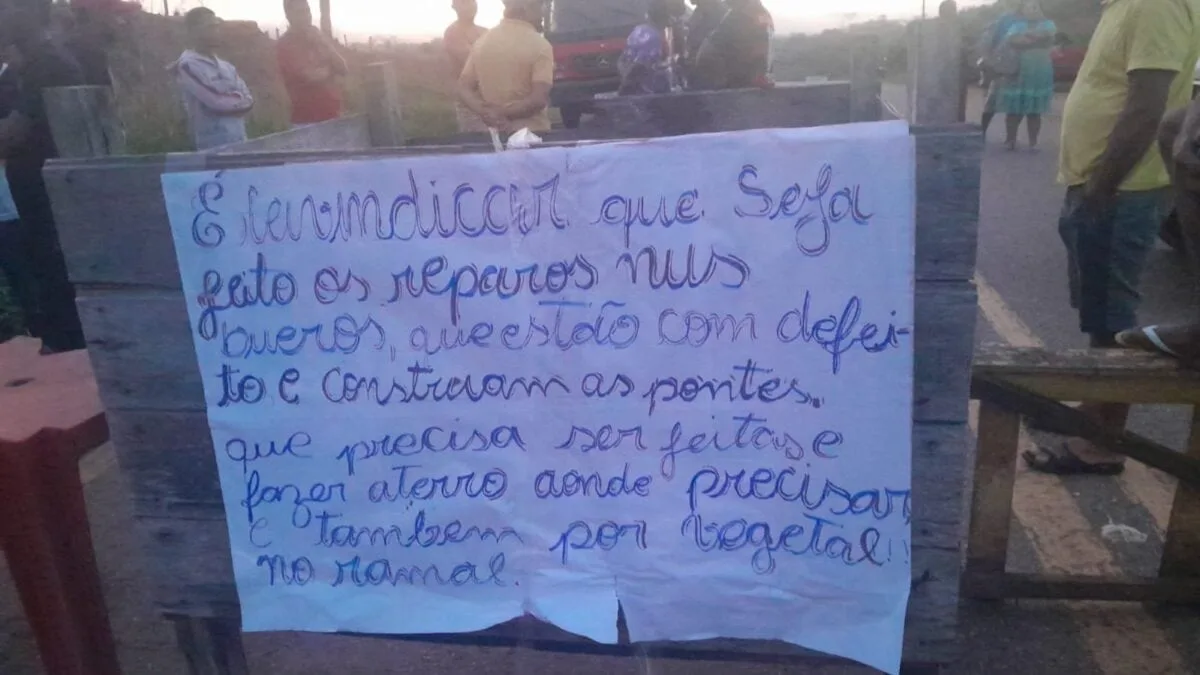 É reivindiccar que Seja
feito os reparos nus
bueros, que estão com defei-
to e construam as pontes.
que precisa ser feitas e
fazer aterro aonde precisar
e tambem por vegetal!!
no ramal.